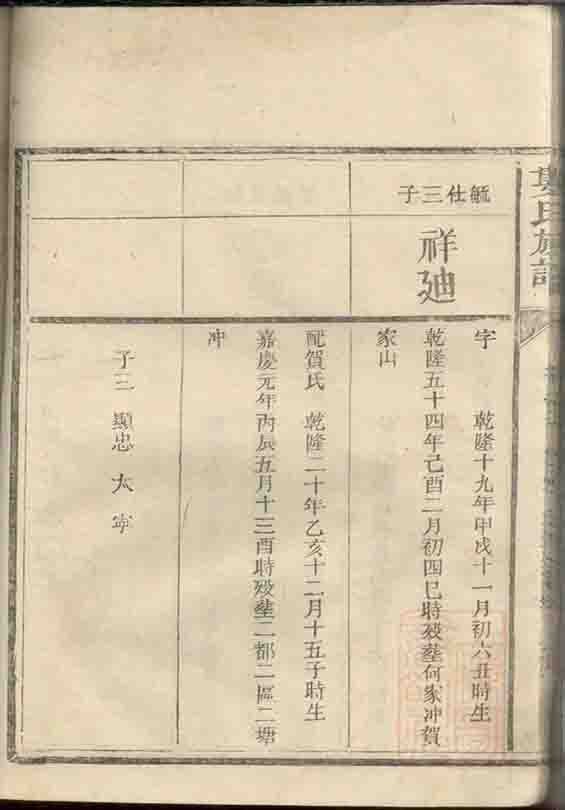 氏族譜
毓仕三子
祥廸
字　乾隆十九年甲戌十一月初六丑時生
乾隆五十四年己酉二月初四巳時歿塟何家冲賀
家山
配賀氏　乾隆二十年乙亥十二月十五子時生
嘉慶元年丙辰五月十三酉時歿塟二都二區二塘
冲
子三　顯忠　大　寧